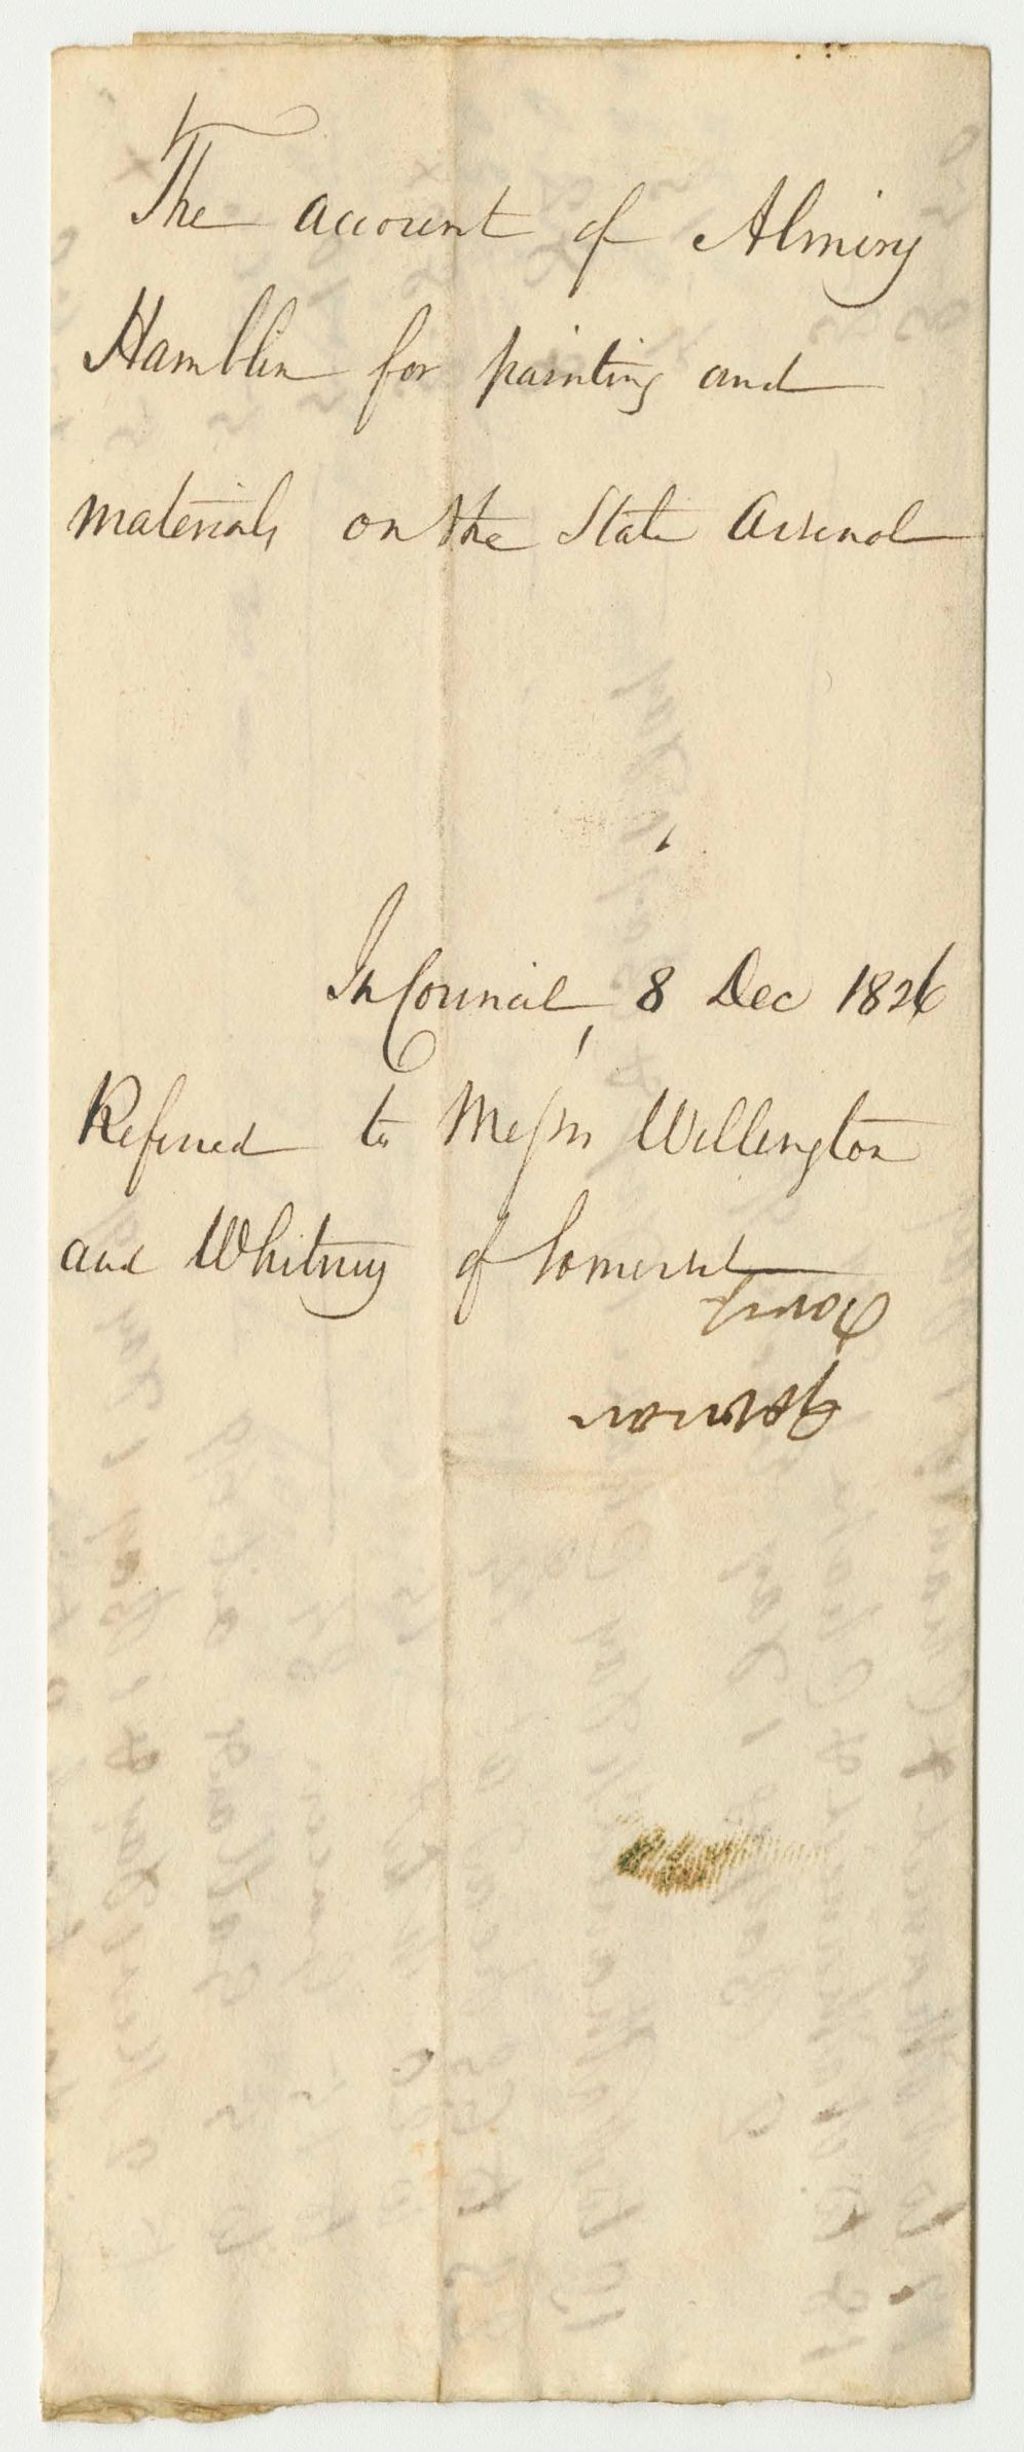 The account of Almery
Hamblin for painting and
materials on the State Arsenal
In Council, 8 Dec 1826
Referred to Messrs Willington
and Whitney of Somerset